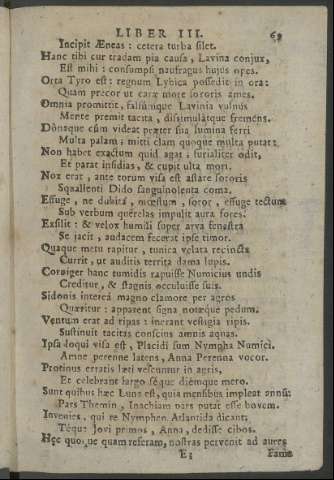 LIBER III. 69
Incipit Æneas: cetera turba silet.
Hanc tibi cur tradam pia causa, Lavina conjux,
Est mihi: consumpsi naufragus hujus opes.
Orta Tyro est: regnum Lybica possedit in ora:
Quam precor ut caræ more sororis ames.
Omnia promittit, falsumque Lavinia vulnus
Mente premit tacita, dissimulatque fremens.
Donaque cùm videat præter sua lumina ferri
Multa palam; mitti clam quoque multa putat.
Non habet exactum quid agat; furialiter odit,
Et parat insidias, & cupit ulta mori.
Nox erat, ante torum visa est astare sororis
Squallenti Dido sanguinolenta coma.
Effuge, ne dubita, mœstum, soror, effuge tectum
Sub verbum querelas impulit aura fores.
Exsilit: & velox humili super arva fenestra
Se jacit, audacem fecerat ipse timor.
Quaque metu rapitur, tunica velata recincta
Currit, ut auditis territa dama lupis.
Corniger hanc tumidis rapuisse Numicius undis
Creditur, & stagnis occuluisse suis.
Sidonis interea magno clamore per agros
Quæritur: apparent signa notæque pedum.
Ventum erat ad ripas: inerant vestigia ripis.
Sustinuit tacitas conscius amnis aquas.
Ipsa loqui visa est, Placidi sum Nympha Numici.
Amne perenne latens, Anna Perenna vocor.
Protinus erratis læti vescuntur in agris,
Et celebrant largo séque diémque mero.
Sunt quibus hæc Luna est, quia mensibus impleat annum:
Pars Themin, Inachiam pars putat esse bovem.
Invenies, qui te Nymphen Atlantida dicant;
Téque Jovi primos, Anna, dedisse cibos.
Hęc quoque quam referam, nostras pervenit ad aures
E3 Fama